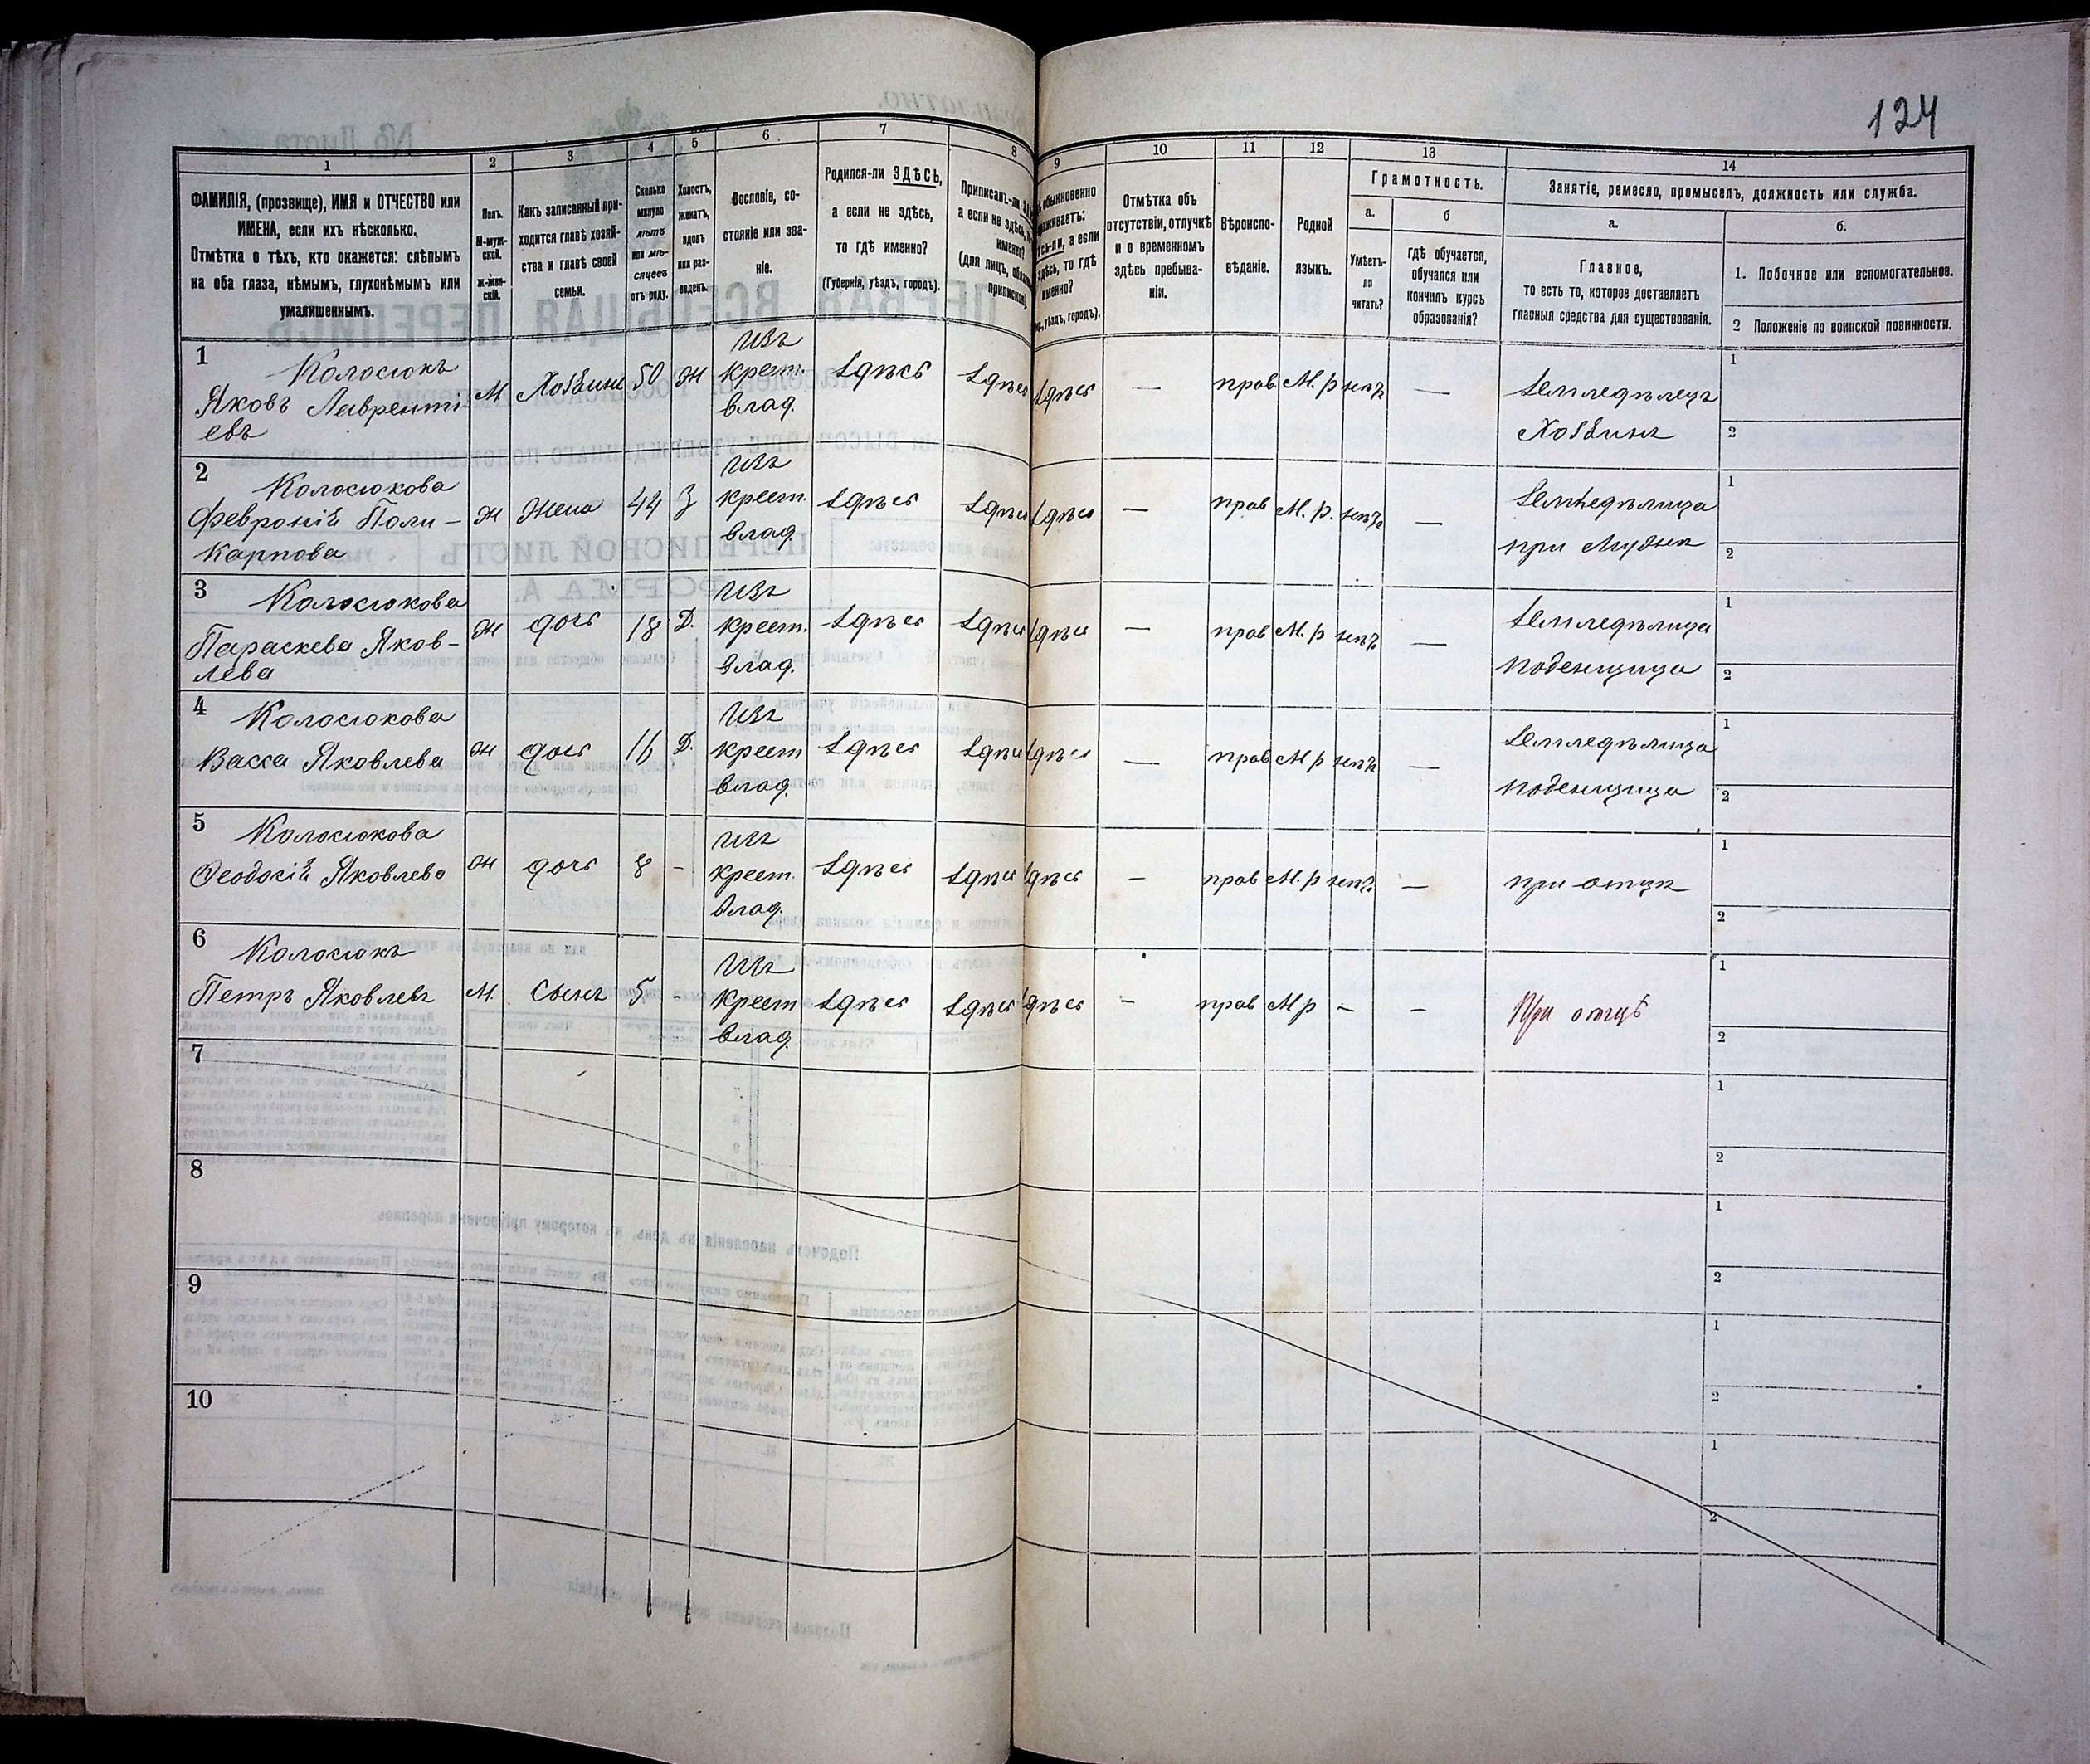 124
1
2
3
4
5
6
7
8
9
10
11
12
13
14
ФАМИЛІЯ, (прозвище), ИМЯ и ОТЧЕСТВО или
ИМЕНА, если ихъ нѣсколько.
Отмѣтка о тѣхъ, кто окажется: слѣпымъ
на оба глаза, нѣмымъ, глухонѣмымъ или
умалишеннымъ.
Полъ.
М-муж-
ской.
ж-жен-
скій.
Какъ записанный при-
ходится главѣ хозяй-
ства и главѣ своей
семьи.
Сколько
минуло
лѣтъ
или мѣ-
сяцевъ
отъ роду.
Холостъ,
женатъ,
вдовъ
или раз-
веденъ.
Сословіе, со-
стояніе или зва-
ніе.
Родился-ли ЗДѢСЬ,
а если не здѣсь,
то гдѣ именно?
(Губернія, уѣздъ, городъ).
Приписанъ-ли
а если не здѣсь,
именно?
(для лицъ,
обыкновенно
а если
здѣсь, то гдѣ
именно?
уѣздъ, городъ).
Отмѣтка объ
отсутствіи, отлучкѣ
и о временномъ
здѣсь пребыва-
ніи.
Вѣроиспо-
вѣданіе.
Родной
языкъ.
Грамотность.
а.
б
Умѣетъ-
ли
читать?
гдѣ обучается,
обучался или
кончилъ курсъ
образованія?
Занятіе, ремесло, промыселъ, должность или служба.
а.
б.
Главное,
то есть то, которое доставляетъ
главныя средства для существованія.
1. Побочное или вспомогательное.
2 Положеніе по воинской повинности.
1
Колосюкъ
Яковъ Лавренті
евъ
м
Хозяинъ
50
ж
Изъ
крест.
влад.
здѣсь
здѣсь
здѣсь
—
прав
М. р
нѣтъ
—
Земледѣлецъ
Хозяинъ
1
2
2
Колосюкова
Февронія Поли-
карпова
ж
Жена
44
З
Изъ
крест.
влад.
здѣсь
здѣсь
здѣсь
—
прав
М. р.
нѣтъ
—
Земледѣлица
при Мужѣ
1
2
3
Колосюкова
Параскева Яков-
лева
ж
дочь
18
Д.
Изъ
крест.
влад.
здѣсь
здѣсь
здѣсь
—
прав
М. р
нѣтъ
—
Земледѣлица
поденщица
1
2
4
Колосюкова
Васса Яковлева
ж
дочь
16
Д.
Изъ
крест
влад.
здѣсь
здѣсь
здѣсь
—
прав
М р
нѣтъ
—
Земледѣлица
поденщица
1
2
5
Колосюкова
Ѳеодосія Яковлева
ж
дочь
8
-
Изъ
крест.
влад.
здѣсь
здѣсь
здѣсь
—
прав
М. р
нѣтъ
—
при отцѣ
1
2
6
Колосюкъ
Петръ Яковлевъ
М.
Сынъ
5
-
Изъ
крест
влад.
здѣсь
здѣсь
здѣсь
-
прав
М р
-
-
При отцѣ
1
2
7
1
2
8
1
2
9
1
2
10
1
2